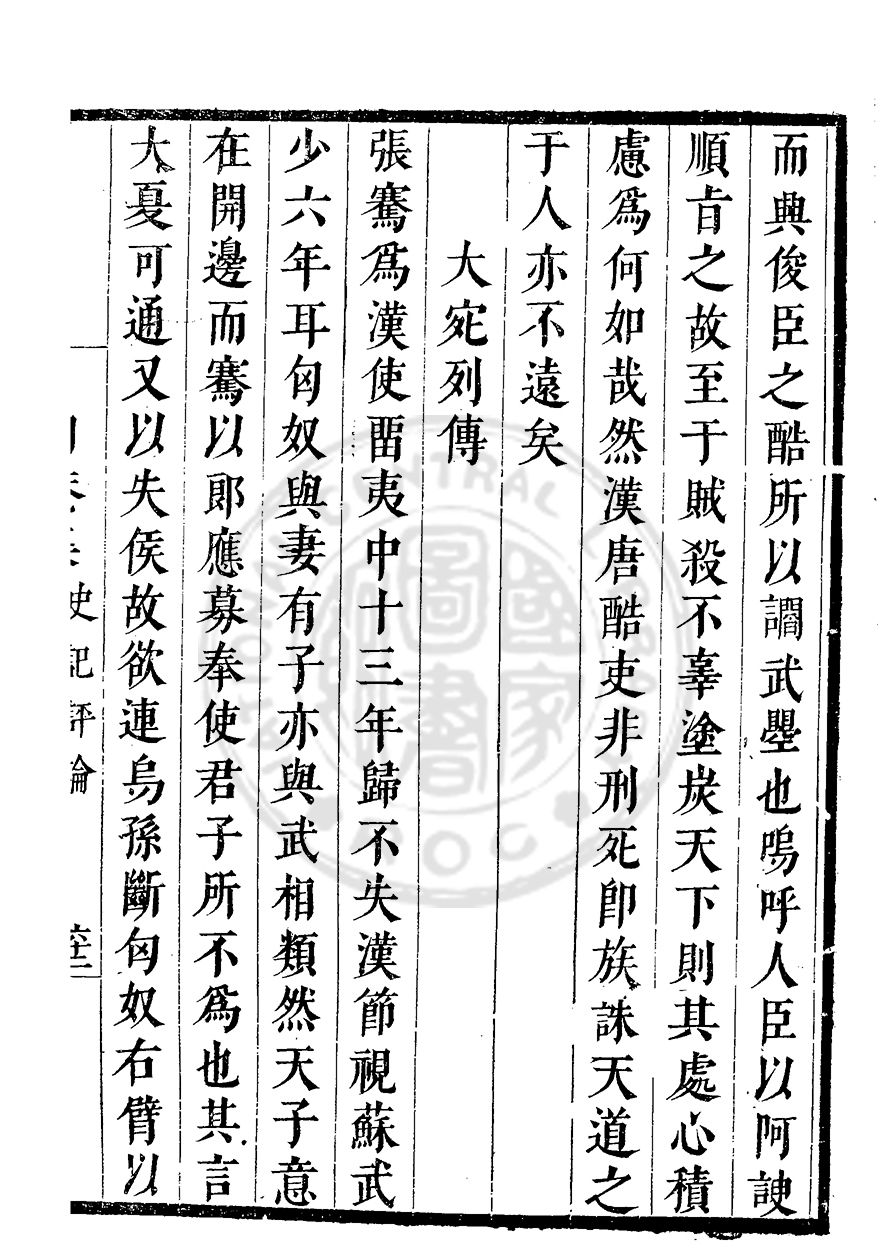 而興俊臣之酷所以讇武曌也嗚呼人臣以阿諛
順旨之故至于賊殺不辜塗炭天下則其處心積
慮爲何如哉然漢唐酷吏非刑死卽族誅天道之
于人亦不遠矣
大宛列傳
張騫爲漢使留夷中十三年歸不失漢節視蘇武
少六年耳匈奴與妻有子亦與武相類然天子意
在開邊而騫以郎應募奉使君子所不爲也其言
大夏可通又以失侯故欲連烏孫斷匈奴右臂以
史記評論